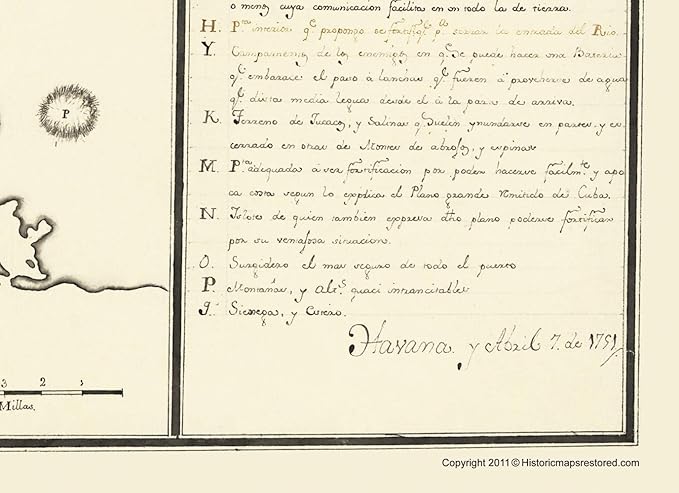 o menos cuya comunicacion facilita en un todo la de tierra.
H. P.ta interior q.e propongo se fortifiq.e p.a serrar la entrada del Rio.
Y. Campamento de los enemigos en q.e Se puede hacer una Bateria
q.e embarace el paso á lanchas q.e fueren á proveherse de agua
q.e dista media legua desde el á la para. de arriva.
K. Terreno de Tucacos, y Salinas q.e Suelen ynundarse en partes, y es
cerrado en otras de Montes de abrojos, y espinas
M. P.ta adequada á ser fortificacion por poder hacerse facilm.te y á po
ca costa segun lo explica el Plano grande remitido de Cuba.
N. Islote de quien tambien expresa dho plano poderse fortificar
por su ventajosa situacion.
O. Surgidero el mas seguro de todo el puerto
P. Montañas, y alt.s quaci intransitables
q. Sienega, y Estero.
Havana. y Abril 7. de 1751.
P
3 2 1
Millas.
Copyright 2011 © Historicmapsrestored.com